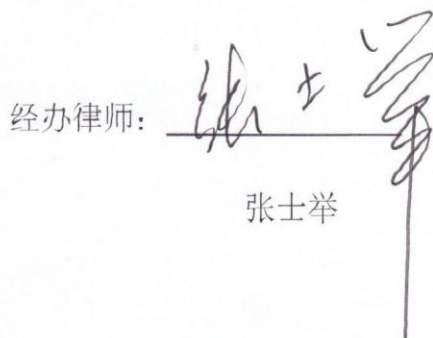 经办律师：张士举
张士举